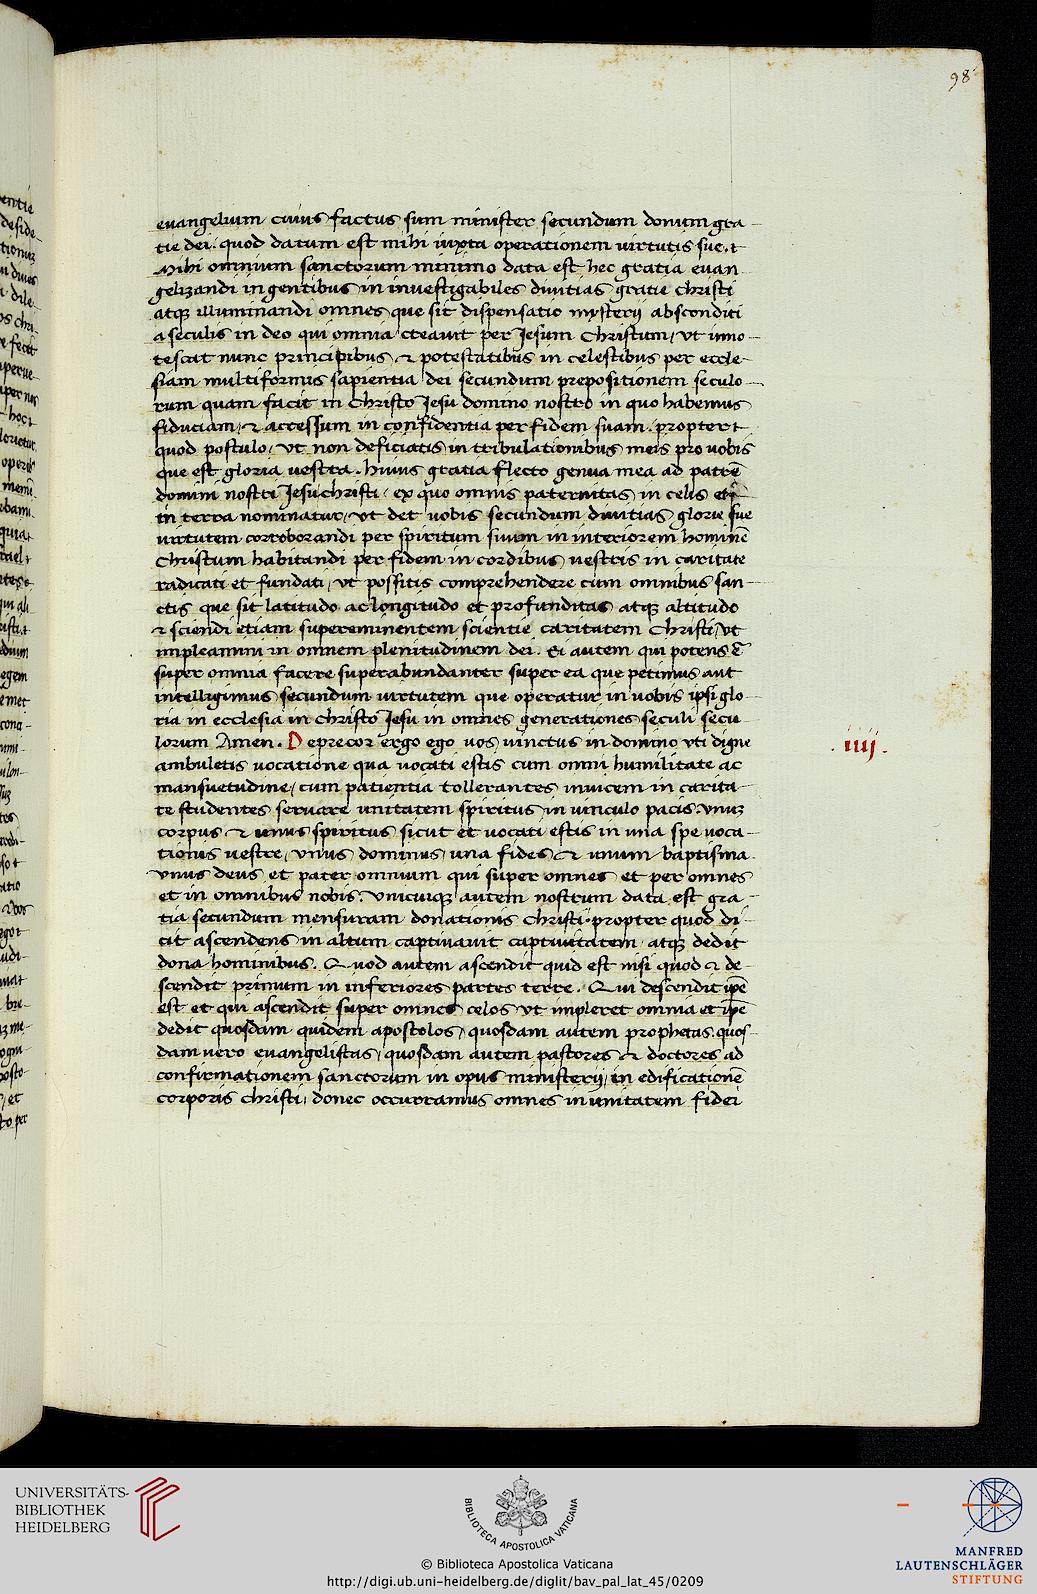 98
euangelium cuius factus sum minister secundum donum gra
tie dei. quod datum est mihi iuxta operationem uirtutis sue. t
Mihi omnium sanctorum minimo data est hec gratia euan
gelizandi in gentibus in inuestigabiles diuitias gratie christi
atqz illuminandi omnes que sit dispensatio mysterij absconditi
a seculis in deo qui omnia creauit per Jesum Christum, ut inno
tescat nunc principibus & potestatibus in celestibus per eccle
siam multiformis sapientia dei secundum prepositionem seculo
rum quam facit in Christo Jesu domino nostro in quo habemus
fiduciam, & accessum in confidentia per fidem suam. propter t
quod postulo, ut non deficiatis in tribulationibus meis pro uobis
que est gloria uestra. huius gratia flecto genua mea ad patrē
domini nostri Jesu christi, ex quo omnis paternitas in celis et
in terra nominatur, ut det uobis secundum diuitias glorie sue
uirtutem corroborandi per spiritum suum in interiorem hominē
Christum habitandi per fidem in cordibus uestris in caritate
radicati et fundati, ut possitis comprehendere cum omnibus san
ctis que sit latitudo ac longitudo et profunditas atqz altitudo
& sciendi etiam supereminentem scientie caritatem Christi, ut
impleamini in omnem plenitudinem dei. Ei autem qui potens ē
super omnia facere superabundanter super ea que petimus aut
intelligimus secundum uirtutem que operatur in uobis ipsi glo
ria in ecclesia in christo Jesu in omnes generationes seculi secu
lorum Amen. Deprecor ergo ego uos uinctus in domino uti digne
. iiij .
ambuletis uocatione qua uocati estis cum omni humilitate ac
mansuetudine, cum patientia tollerantes inuicem in carita
te studentes seruare unitatem spiritus in uinculo pacis. Vnuz
corpus & unus spiritus sicut et uocati estis in una spe uoca
tionis uestre, unus dominus, una fides & unum baptisma.
Vnus deus et pater omnium qui super omnes et per omnes
et in omnibus nobis. Vnicuiqz autem nostrum data est gra
tia secundum mensuram donationis christi. propter quod di
cit ascendens in altum captiuauit captiuitatem, atqz dedit
dona hominibus. Quod autem ascendit quid est nisi quod & de
scendit primum in inferiores partes terre. Qui descendit ipē
est et qui ascendit super omnes celos ut impleret omnia et ipē
dedit quosdam quidem apostolos, quosdam autem prophetas. quos
dam uero euangelistas, quosdam autem pastores & doctores ad
confirmationem sanctorum in opus ministerij, in edificationē
corporis christi, donec occurramus omnes in unitatem fidei
UNIVERSITÄTS-
BIBLIOTHEK
HEIDELBERG
BIBLIOTECA APOSTOLICA VATICANA
© Biblioteca Apostolica Vaticana
http://digi.ub.uni-heidelberg.de/diglit/bav_pal_lat_45/0209
MANFRED
LAUTENSCHLÄGER
STIFTUNG